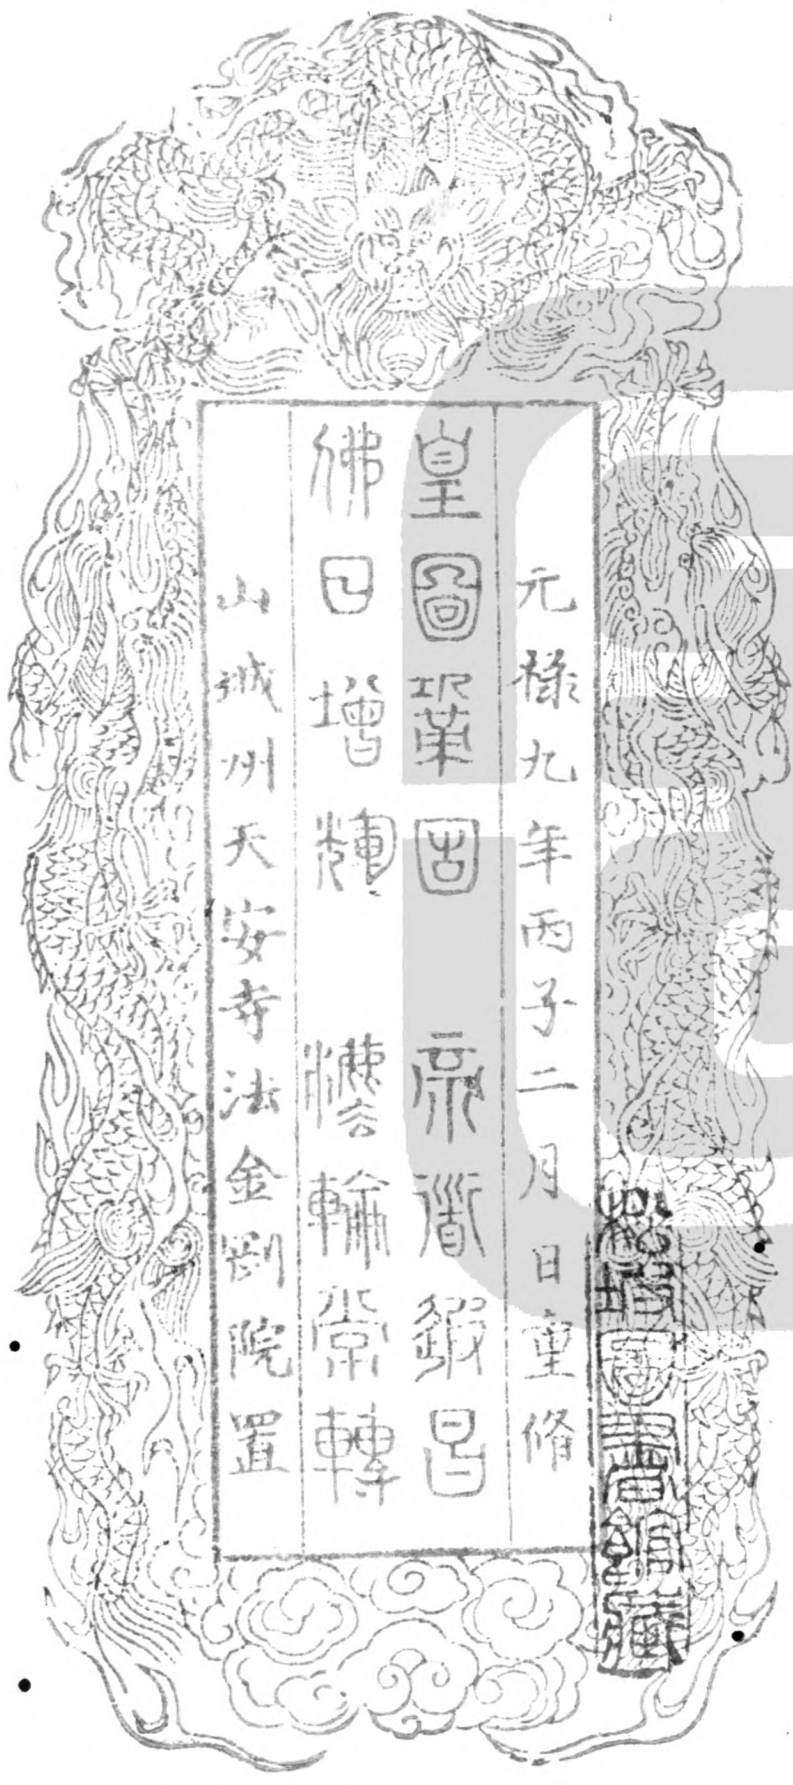 元祿九年丙子二月 日重脩
皇圖鞏固 帝道遐昌
佛日增輝 灋輪常轉
山城州天安寺法金剛院置
松坡圖書館藏